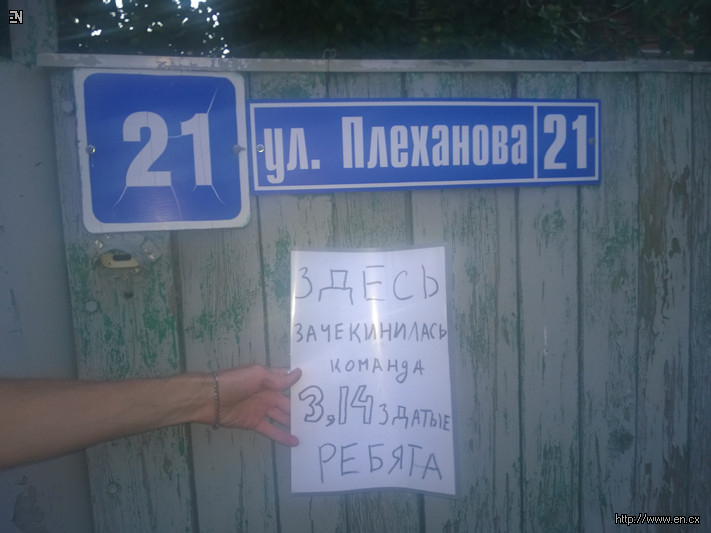 EN
21
ул. Плеханова 21
ЗДЕСЬ
ЗАЧЕКИНИЛАСЬ
КОМАНДА
3,14ЗДАТЫЕ
РЕБЯТА
http://www.en.cx